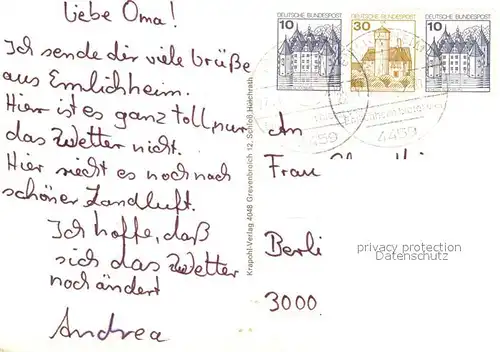 Liebe Oma!
Ich sende dir viele Grüße
aus Emlichheim.
Hier ist es ganz toll, nur
das Wetter nicht.
Hier riecht es noch nach
schöner Landluft.
Ich hoffe, daß
sich das Wetter
noch ändert
Andrea
Krapohl-Verlag 4048 Grevenbroich 12, Schloß Hülchrath
DEUTSCHE BUNDESPOST
10
DEUTSCHE BUNDESPOST
30
DEUTSCHE BUNDESPOST
10
4459
4459
An
Frau
Berli
3000
privacy protection
Datenschutz